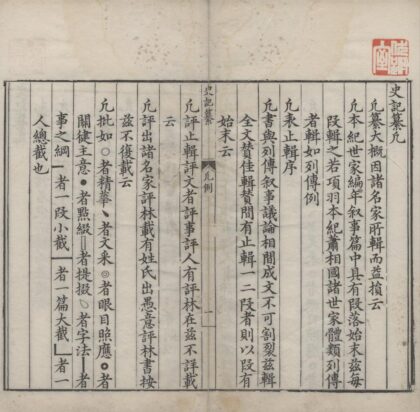 史記纂凡
凡纂大概因諸名家所輯而益損云
凡本紀世家編年叙事篇中具有段落始末茲每
段輯之若項羽本紀蕭相國諸世家體類列傳
者輯如列傳例
凡表止輯序
凡書與列傳叙事議論相間成文不可割裂茲輯
全文贊佳輯贊間有止輯一二段者則以段有
始末云
史記纂 凡例 一
凡評止輯評文者評事評人有評林在茲不詳載
云
凡評出諸名家評林載有姓氏出愚意評林書按
茲不復載云
凡批如○者精華、者文采◎者眼目照應●者
關鍵主意●者點綴‖者提掇○者字法｜者
事之綱｜者一段小截｜者一篇大截∟者一
人總截也